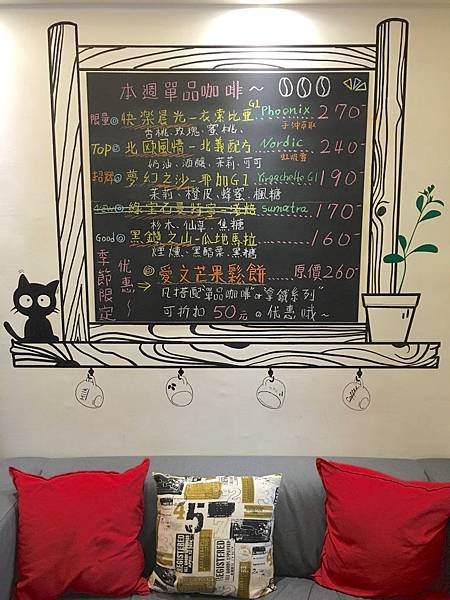 本週單品咖啡～
限量 快樂晨光－衣索比亞 G1 Phoenix 270-
杏桃、玫瑰、蜜桃、
TOP 北歐風情－北義配方 Nordic 240-
奶油、酒釀、茉莉、可可
招牌 夢幻之沙－耶加G1 Yirgacheffe G1 190-
茉莉、橙皮、蜂蜜、楓糖
sumatra 170-
杉木、仙草、焦糖
Good 黑鑽之山－瓜地馬拉 160-
煙燻、黑醋栗、黑糖
季節限定
優惠～
愛文芒果鬆餅 原價260-
凡搭配"單品咖啡"or"拿鐵系列"
可折扣50元の優惠哦～
MILK
Coffee
45
REGISTERED
REGISTERED